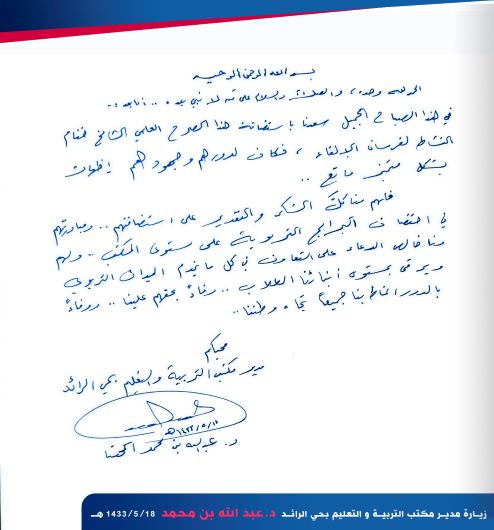 بسم الله الرحمن الرحيم
الحمد لله وحده، والصلاة والسلام على من لا نبي بعده .. أما بعد :-
في هذا الصباح الجميل سعدنا باستضافة هذا الصرح العلمي الشامخ لختام
النشاط لفرسان الإلقاء ، فكان لدورهم وجهودهم
بشكل متميز ماتع ..
فلهم منا كل الشكر والتقدير على استضافتهم .. ومبادرتهم
في احتضان البرامج التربوية على مستوى المكتب .. ولهم
منا خالص الدعاء على التعاون في كل ما يخدم الميدان التربوي
ويرقى بمستوى أبنائنا الطلاب .. وفاءً بحقهم علينا .. ووفاءً
بالدور المناط بنا جميعاً تجاه وطننا ..
محبكم
مدير مكتب التربية والتعليم بحي الرائد
١٤٣٣/٥/١٨هـ
د. عبدالله بن محمد
زيارة مدير مكتب التربية و التعليم بحي الرائـد د.عبد الله بن محمد 1433/5/18 هـ